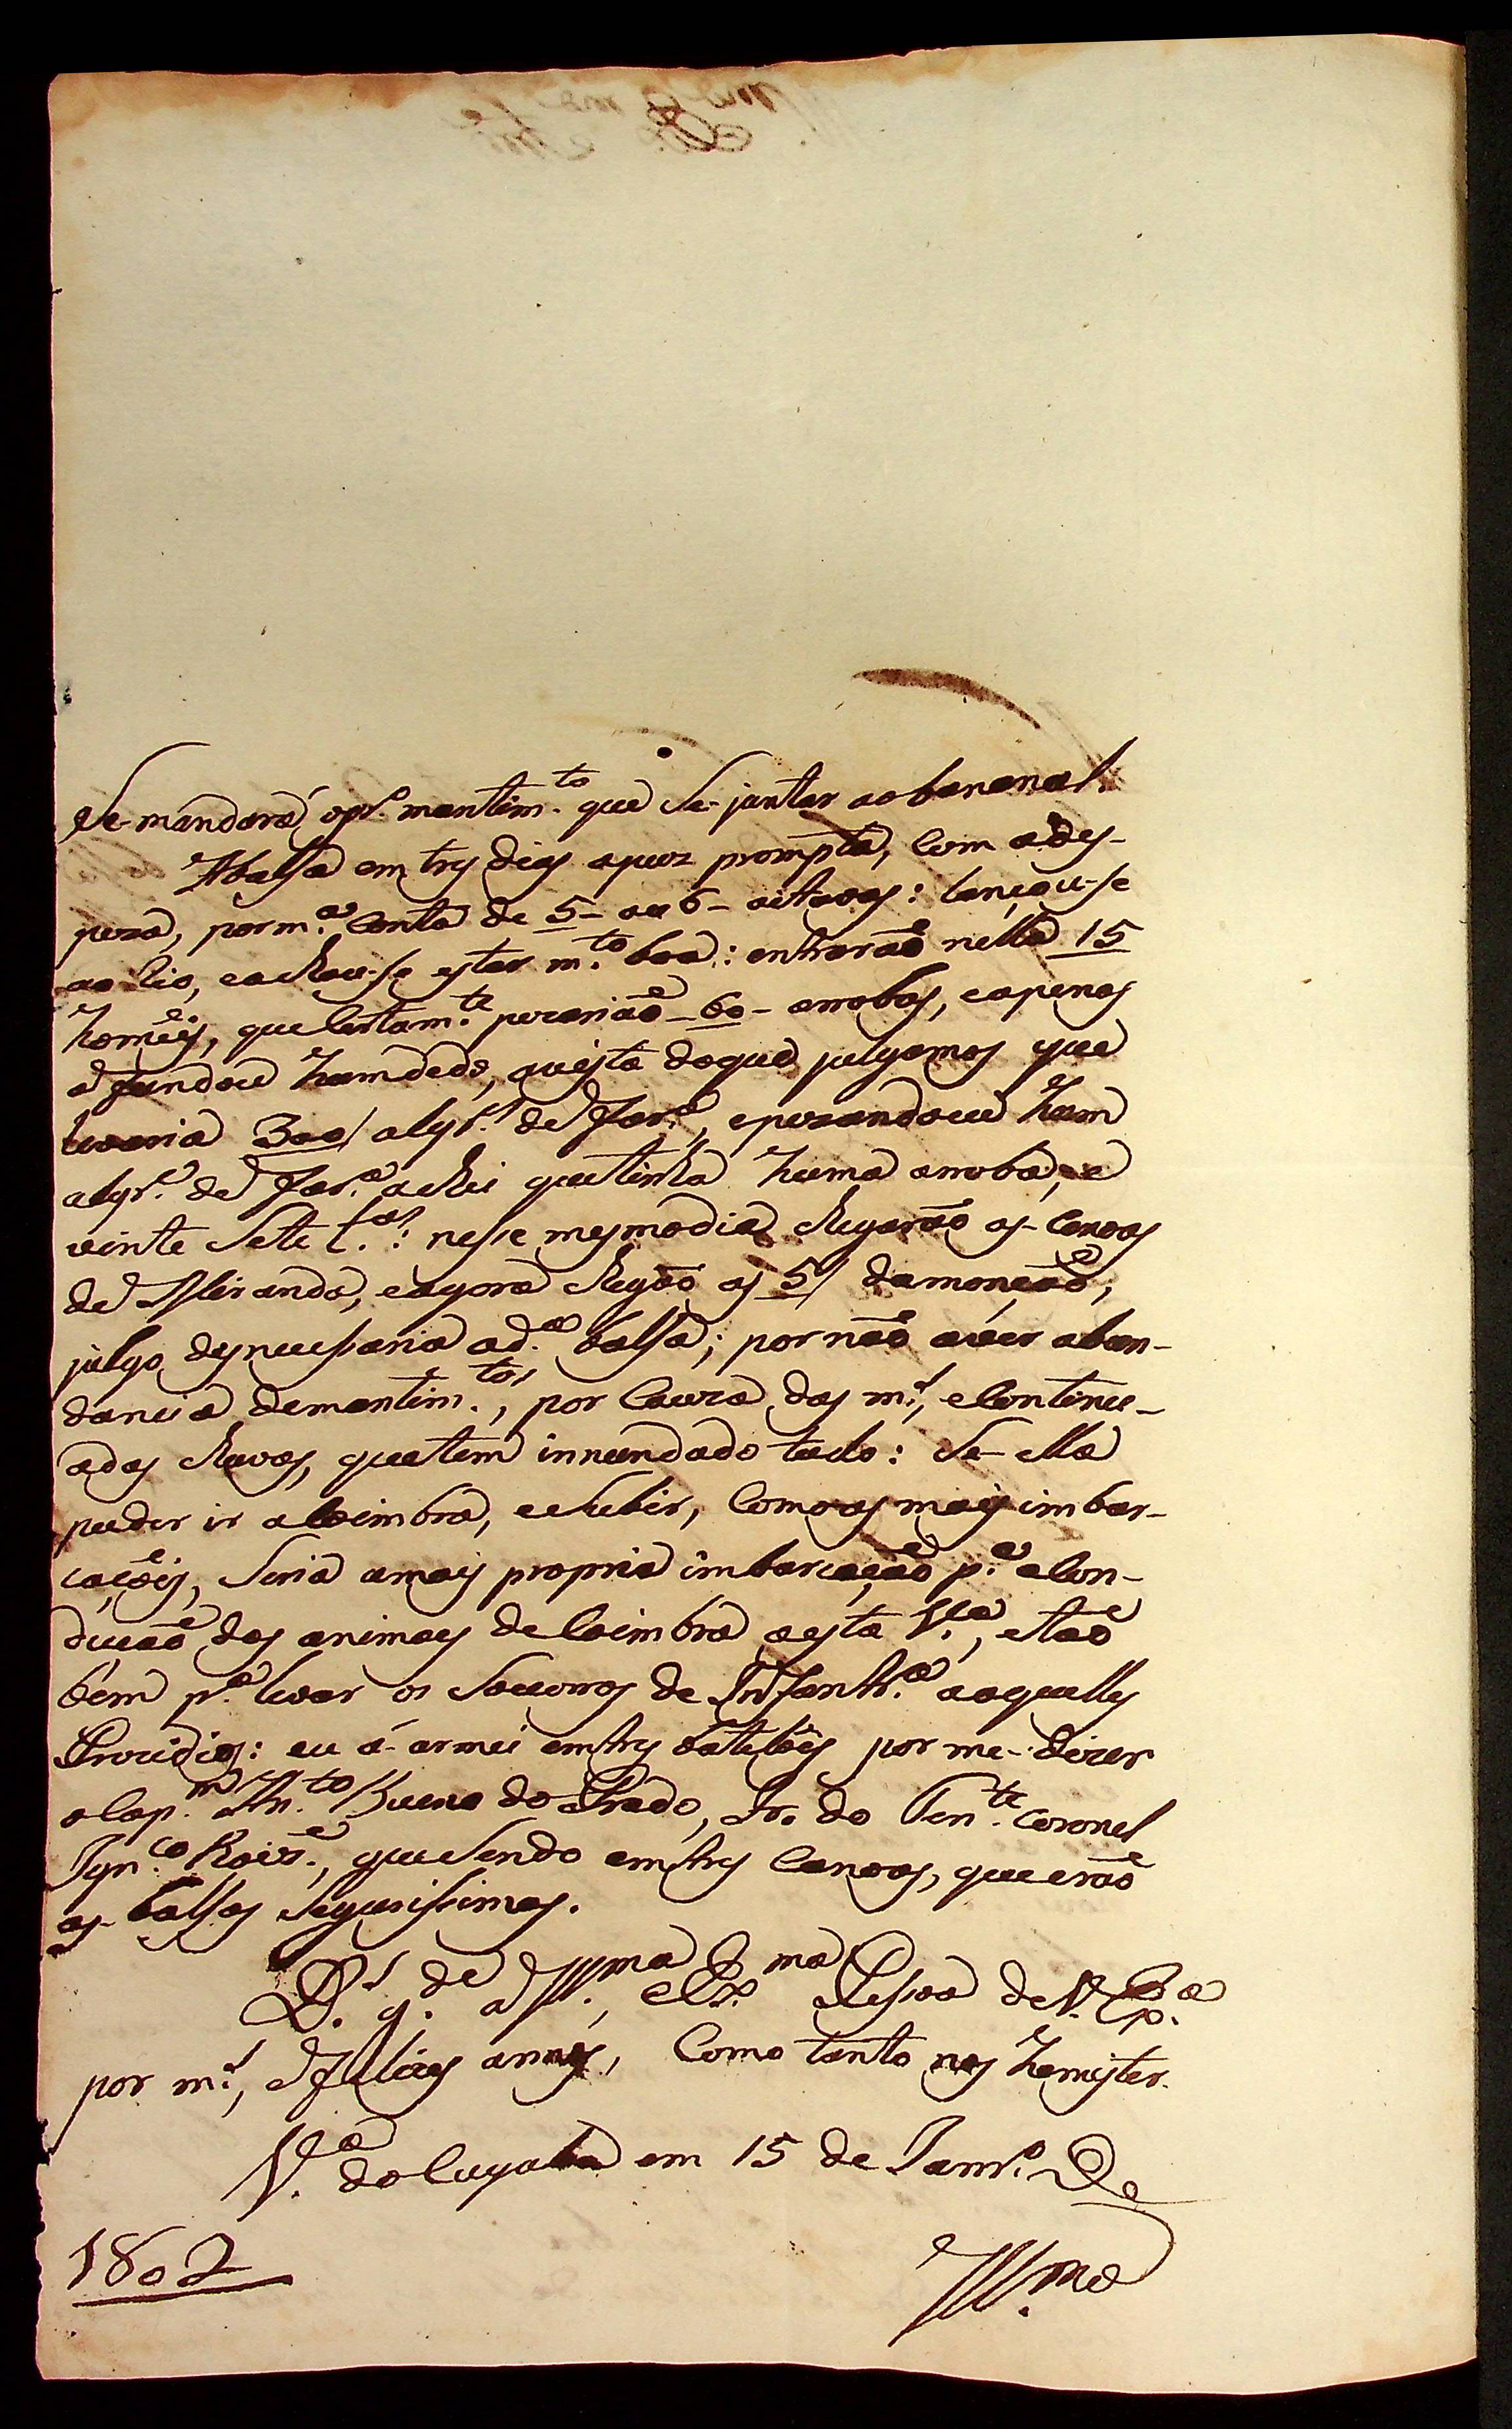 Se-mandará op.r mantim.to que Se-juntar ao bananal.
A balsa em tres dias apuz prompta, Com a des-
peza, por m.a Conta de 5- ou 6- oitavas: lançou-se
ao Rio, e achou-se estar m.to boa: entrarão nella 15
homẽis, que Certam.te pezarião -60- arrobas, e apenas
afundou hum dedo, avista do que julgamos que
levaria 300/ alqr.s de Far.a, e pezando eu hum
alqr.e de Far.a achei que tinha huma arroba, e
vinte Sete L.as: nesse mesmo dia Chegarão as-Canoas
de Miranda, e agora Chegão as 5/ da monção,
julgo desnecessaria ad.a balsa; por não aver abun-
dancia de mantim.tos, por Cauza das m.s, e Continu-
adas chuvas, que tem innundado tudo: Se-ella
puder ir a Coimbra, e Subir, Como as mais imbar-
caçoẽis, Seria a mais propria imbarcação p.a a Con-
dução dos animaes de Coimbra a esta V.a, e tão
bem p.a levar os Socorros de Infantr.a a aquelles
Prezidios: eu á-armei em tres batelõis por me-dizer
o Cap.m An.to Bueno do Prado, Ir. do Ten.te Coronel
Ign.co Roiz., que Sendo em tres Canoas, que erão
as-balsas Segurissimas.
D.s g.de a Ill.ma, e Ex.ma Pessoa de V. Ex.a
por m.s, e felices annos, Como tanto nos he mister.
V.a do Cuyabá em 15 de Janr.o De
1802
Ill.mo